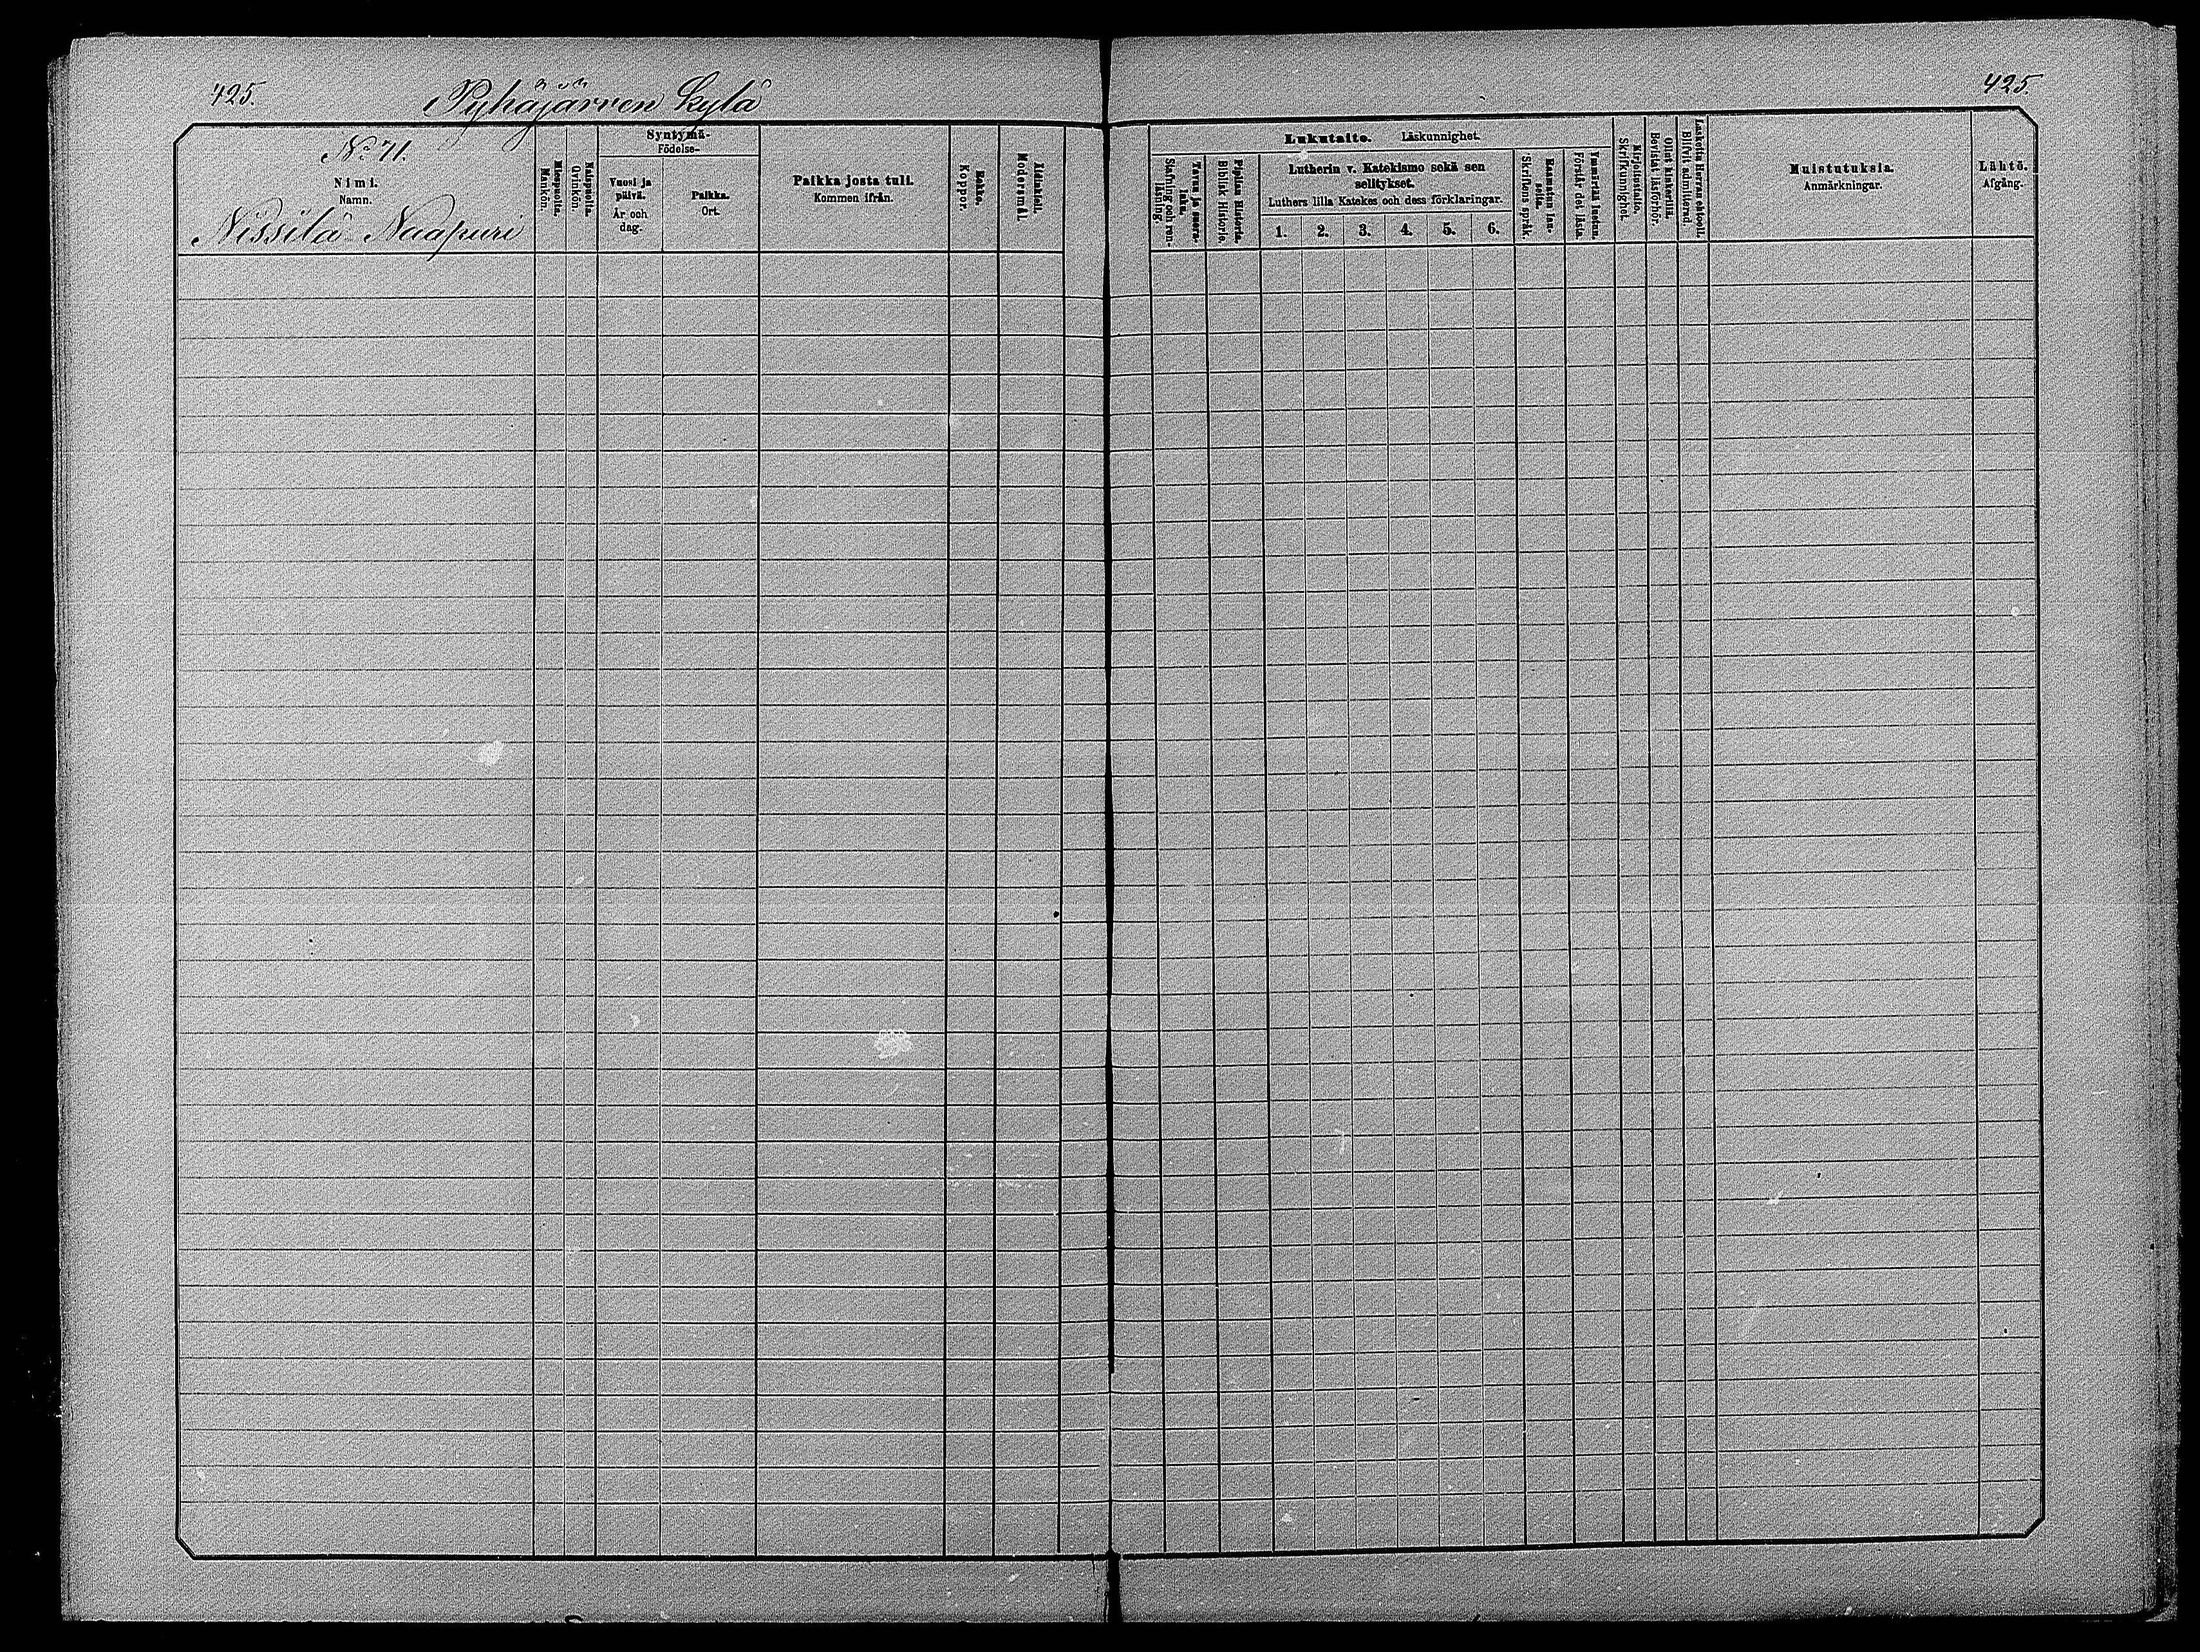 425.
Pyhäjärven kylä
425.
No 71.
Nimi.
Namn.
Nissilä Naapuri
Miespuolia.
Mankön.
Naispuolia.
Qvinkön.
Syntymä-
Födelse-
Vuosi ja
päivä.
År och
dag.
Paikka.
Ort.
Paikka josta tuli.
Kommen ifrån.
Rokko.
Koppor.
Äidinkieli.
Modersmål.
Lukutaito. Läskunnighet.
Tavuu ja suora-
luku.
Stafning och ren-
läsning.
Piplian Historia.
Biblisk Historie.
Lutherin v. Katekismo sekä sen
selitykset.
Luthers lilla Katekes och dess förklaringar.
1. 2. 3. 4. 5. 6.
Raamatun lau-
seita.
Skriftens språk.
Ymmärtää luetun.
Förstår det lästa.
Kirjoitustaito.
Skrifkunnighet.
Ollut kinkerillä.
Bevistat läsförhör.
Laskettu Herran ehtoolI.
Blifvit admitterad.
Muistutuksia.
Anmärkningar.
Lähtö.
Afgång.